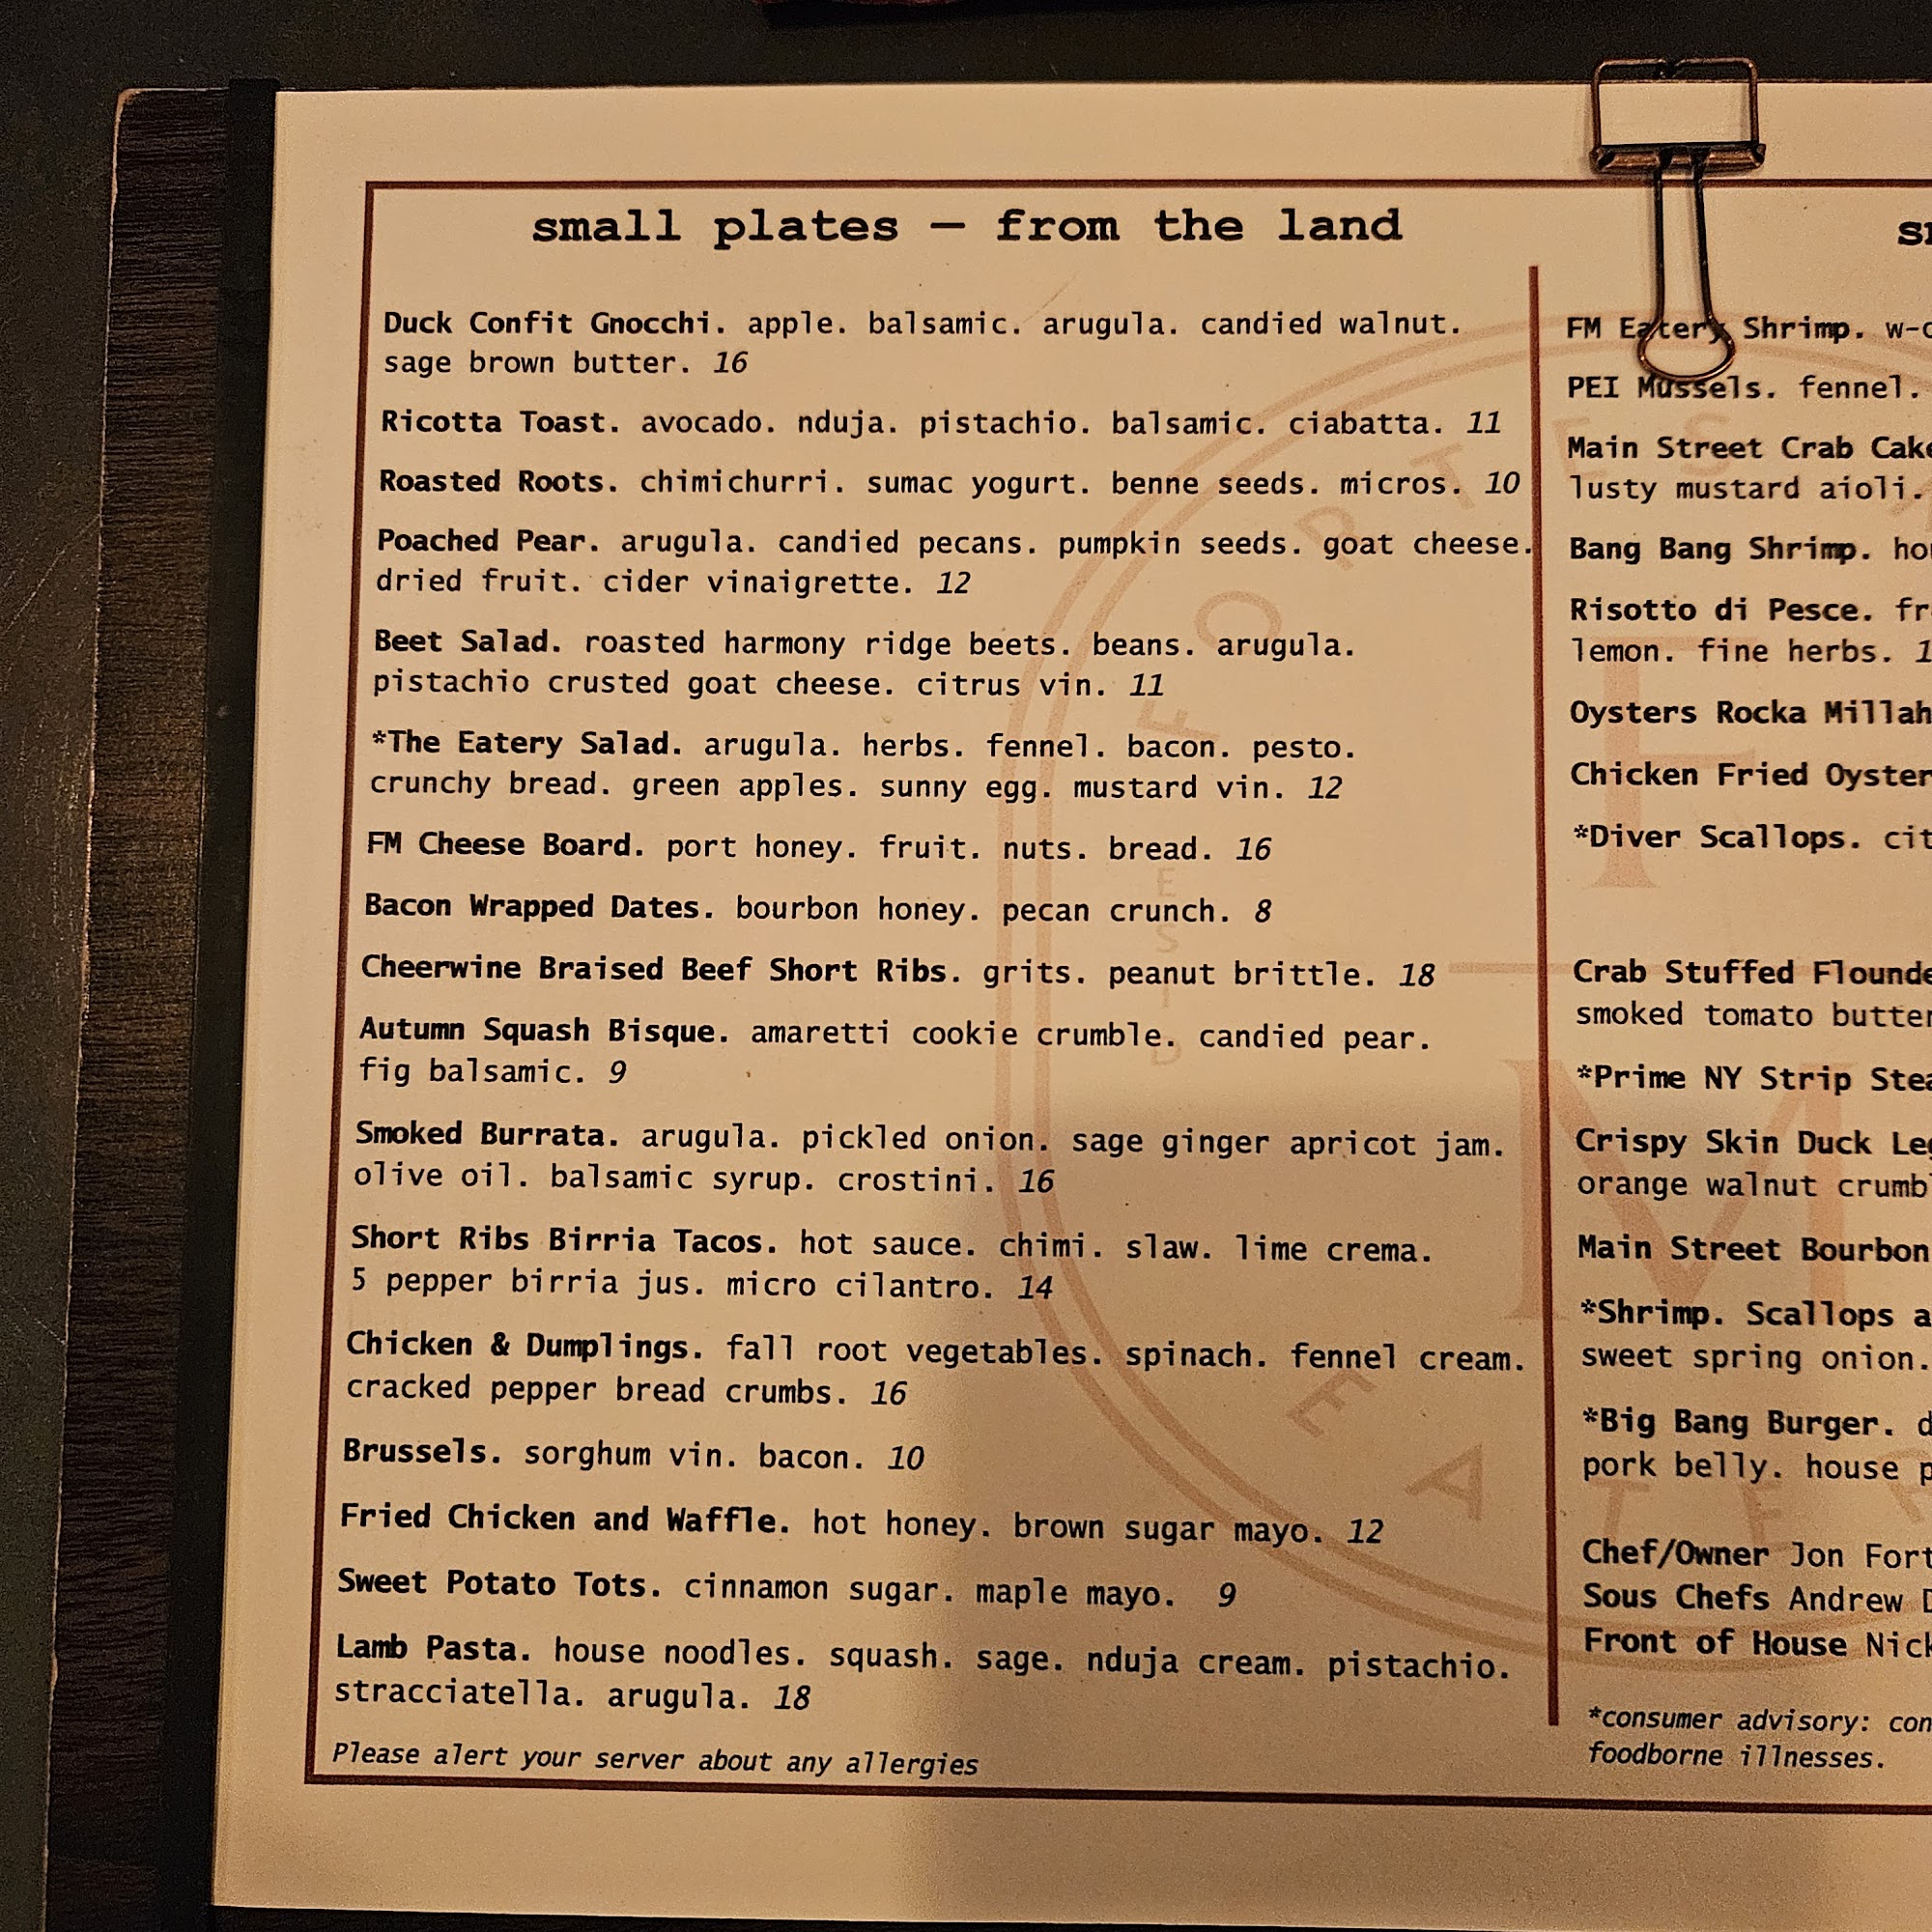 small plates — from the land
Duck Confit Gnocchi. apple. balsamic. arugula. candied walnut.
sage brown butter. 16
Ricotta Toast. avocado. nduja. pistachio. balsamic. ciabatta. 11
Roasted Roots. chimichurri. sumac yogurt. benne seeds. micros. 10
Poached Pear. arugula. candied pecans. pumpkin seeds. goat cheese.
dried fruit. cider vinaigrette. 12
Beet Salad. roasted harmony ridge beets. beans. arugula.
pistachio crusted goat cheese. citrus vin. 11
*The Eatery Salad. arugula. herbs. fennel. bacon. pesto.
crunchy bread. green apples. sunny egg. mustard vin. 12
FM Cheese Board. port honey. fruit. nuts. bread. 16
Bacon Wrapped Dates. bourbon honey. pecan crunch. 8
Cheerwine Braised Beef Short Ribs. grits. peanut brittle. 18
Autumn Squash Bisque. amaretti cookie crumble. candied pear.
fig balsamic. 9
Smoked Burrata. arugula. pickled onion. sage ginger apricot jam.
olive oil. balsamic syrup. crostini. 16
Short Ribs Birria Tacos. hot sauce. chimi. slaw. lime crema.
5 pepper birria jus. micro cilantro. 14
Chicken & Dumplings. fall root vegetables. spinach. fennel cream.
cracked pepper bread crumbs. 16
Brussels. sorghum vin. bacon. 10
Fried Chicken and Waffle. hot honey. brown sugar mayo. 12
Sweet Potato Tots. cinnamon sugar. maple mayo. 9
Lamb Pasta. house noodles. squash. sage. nduja cream. pistachio.
stracciatella. arugula. 18
Please alert your server about any allergies
FM Eatery Shrimp.
PEI Mussels. fennel.
Main Street Crab
lusty mustard aioli.
Bang Bang Shrimp.
Risotto di Pesce.
lemon. fine herbs.
Oysters Rocka
Chicken Fried
*Diver Scallops.
Crab Stuffed
smoked tomato
*Prime NY Strip
Crispy Skin Duck
orange walnut
Main Street Bourbon
*Shrimp. Scallops
sweet spring onion.
*Big Bang Burger.
pork belly. house
Chef/Owner Jon
Sous Chefs Andrew
Front of House
*consumer advisory:
foodborne illnesses.